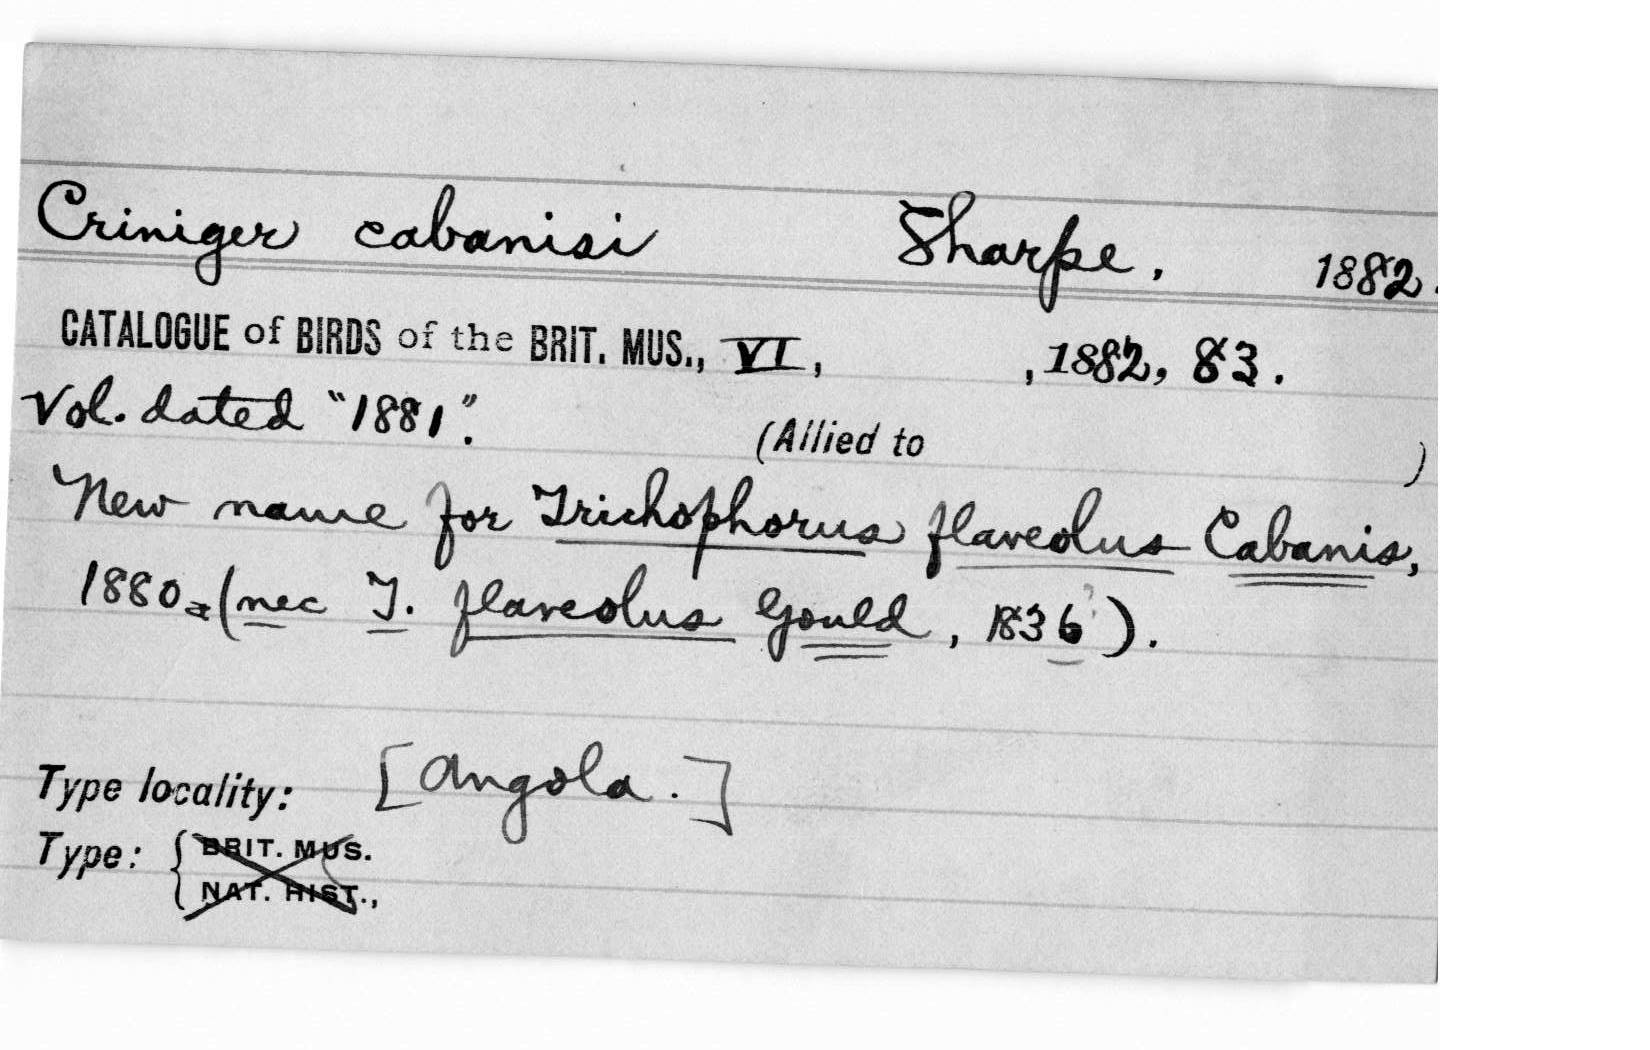 Criniger cabanisi Sharpe, 1882.
CATALOGUE of BIRDS of the BRIT. MUS., VI, , 1882, 83.
Vol. dated "1881".
(Allied to )
New name for Trichophorus flaveolus Cabanis,
1880a (nec T. flaveolus Gould, 1836?).
Type locality: [Angola.]
Type: { BRIT. MUS.
NAT. HIST.,